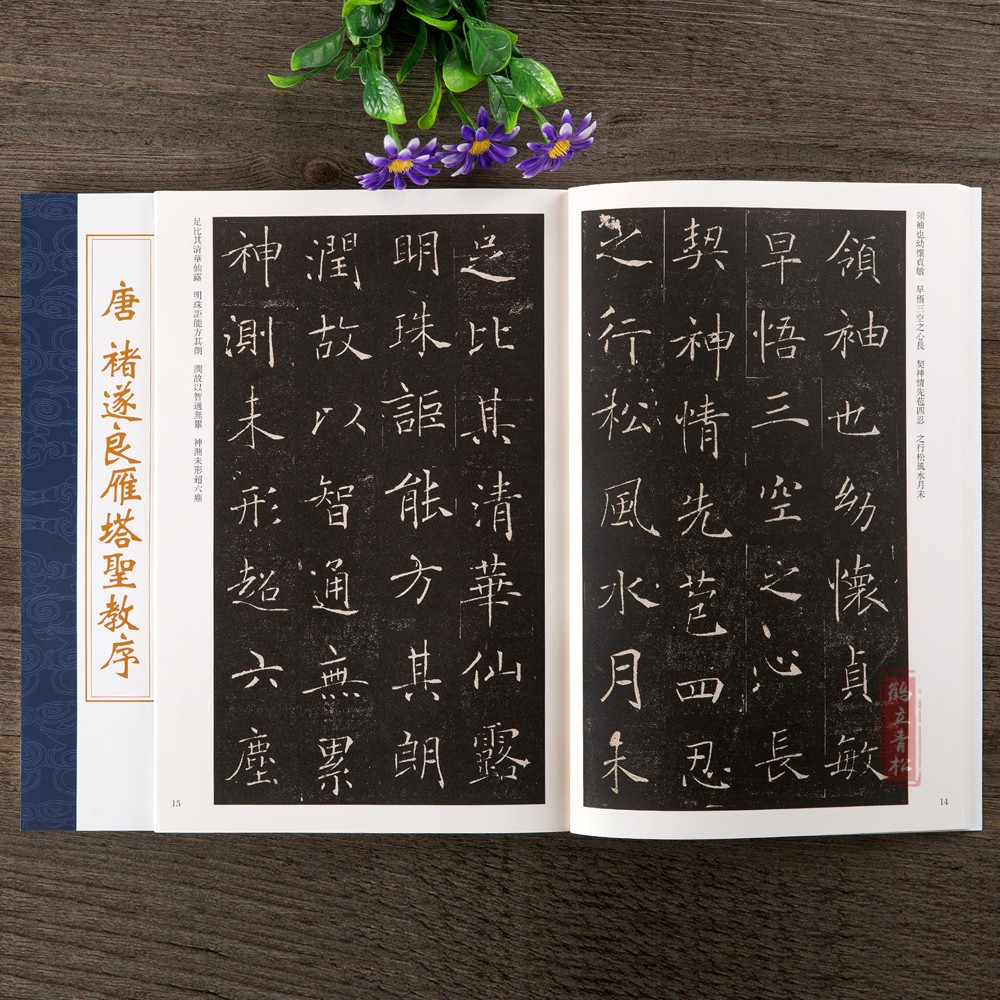 領袖也幼懷貞敏　早悟三空之心長　契神情先苞四忍　之行松風水月未
領袖也幼懷貞敏
早悟三空之心長
契神情先苞四忍
之行松風水月未
14
鶴立青松
足比其清華仙露
明珠詎能方其朗
潤故以智通無累
神測未形超六塵
足比其清華仙露　明珠詎能方其朗　潤故以智通無累　神測未形超六塵
15
唐 褚遂良雁塔聖教序